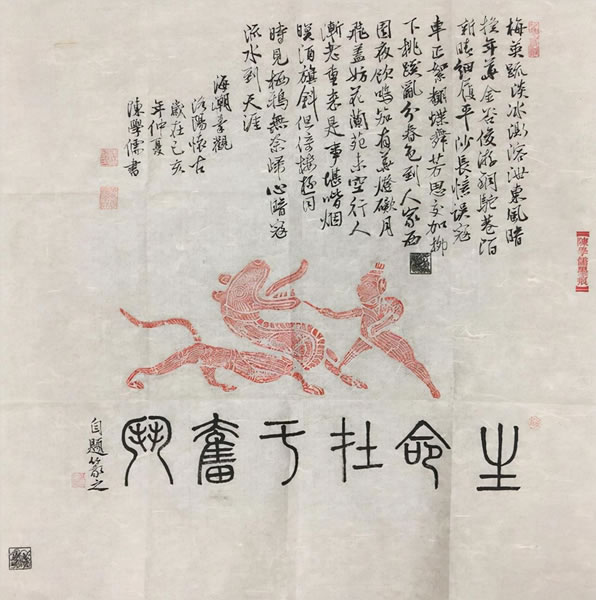 梅英疏淡冰澌溶泄東風暗
換年華金谷俊游銅駝巷陌
新晴細履平沙長憶誤隨
車正絮翻蝶舞芳思交加柳
下桃蹊亂分春色到人家西
園夜飲鳴笳有華燈礙月
飛蓋妨花蘭苑未空行人
漸老重來是事堪嗟烟
暝酒旗斜但倚樓極目
時見栖鴉無奈歸心暗隨
流水到天涯
海潮秦觀
洛陽懷古
歲在己亥
年仲夏
陳學儒書
陳學儒墨痕
生命在于奮鬥
自題篆之